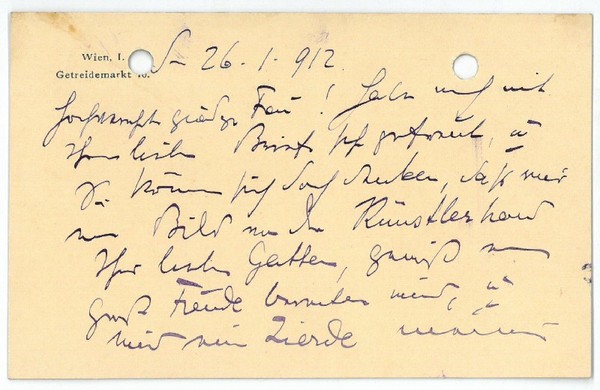 Wien, I.
Getreidemarkt 10.
26. 1. 912.
gnädige Frau! Habe mich mit
Ihrem lieben Brief sehr gefreut, u
Sie können sich doch denken, daß mir
ein Bild von der Künstlerhand
Ihres lieben Gatten, gewiß eine
große Freude bereiten wird, u
wird eine Zierde meines